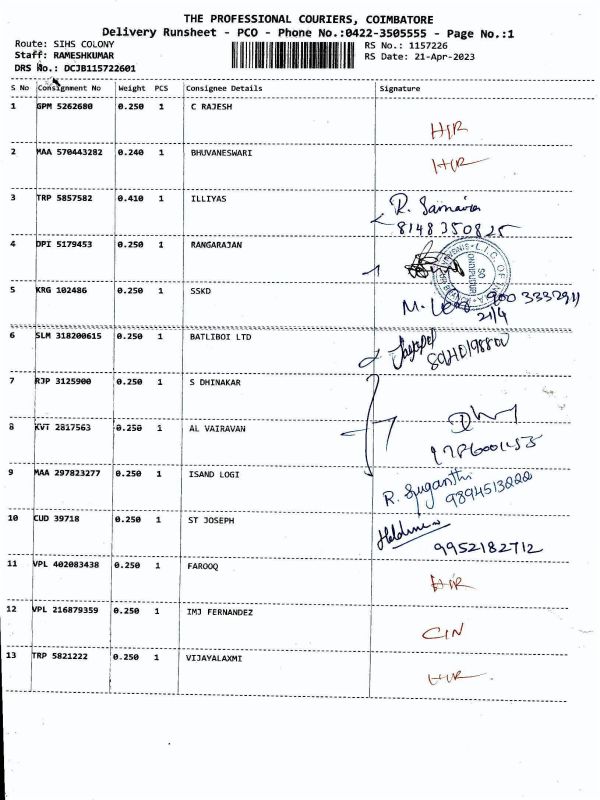 THE PROFESSIONAL COURIERS, COIMBATORE
Delivery Runsheet - PCO - Phone No.:0422-3505555 - Page No.:1
Route: SIHS COLONY RS No.: 1157226
Staff: RAMESHKUMAR RS Date: 21-Apr-2023
DRS No.: DCJB115722601
S No Consignment No Weight PCS Consignee Details Signature
1 GPM 5262680 0.250 1 C RAJESH
HIR
2 MAA 570443282 0.240 1 BHUVANESWARI HIR
3 TRP 5857582 0.410 1 ILLIYAS R.
8148350825
4 DPI 5179453 0.250 1 RANGARAJAN
L.I.C. OF INDIA
SO
5 KRG 102486 0.250 1 SSKD M. 900 3332911
21/4
6 SLM 318200615 0.250 1 BATLIBOI LTD
7 RJP 3125900 0.250 1 S DHINAKAR
8 KVT 2817563 0.250 1 AL VAIRAVAN
9 MAA 297823277 0.250 1 ISAND LOGI R. Suganthi
9894513222
10 CUD 39718 0.250 1 ST JOSEPH
9952182712
11 VPL 402083438 0.250 1 FAROOQ HIR
12 VPL 216879359 0.250 1 IMJ FERNANDEZ
CIN
13 TRP 5821222 0.250 1 VIJAYALAXMI
HIR